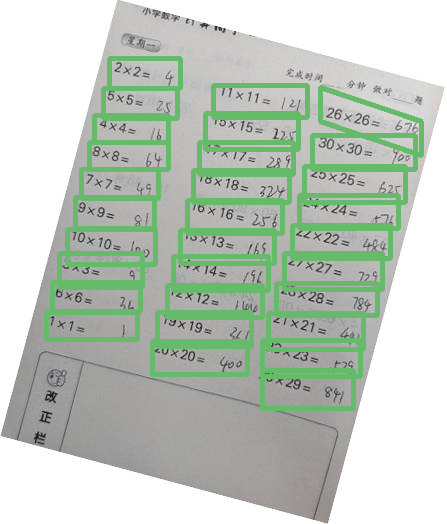 小学数学
星期一
完成时间 分钟 做对 题
2×2= 4
5×5= 25
4×4= 16
8×8= 64
7×7= 49
9×9= 81
10×10= 100
3×3= 9
6×6= 36
1×1= 1
11×11= 121
15×15= 225
17×17= 289
18×18= 324
16×16= 256
13×13= 169
14×14= 196
12×12=
19×19= 361
20×20= 400
26×26= 676
30×30= 900
25×25= 625
24×24= 576
22×22= 484
27×27= 729
28×28= 784
21×21= 441
23×23= 529
×29= 841
改正栏